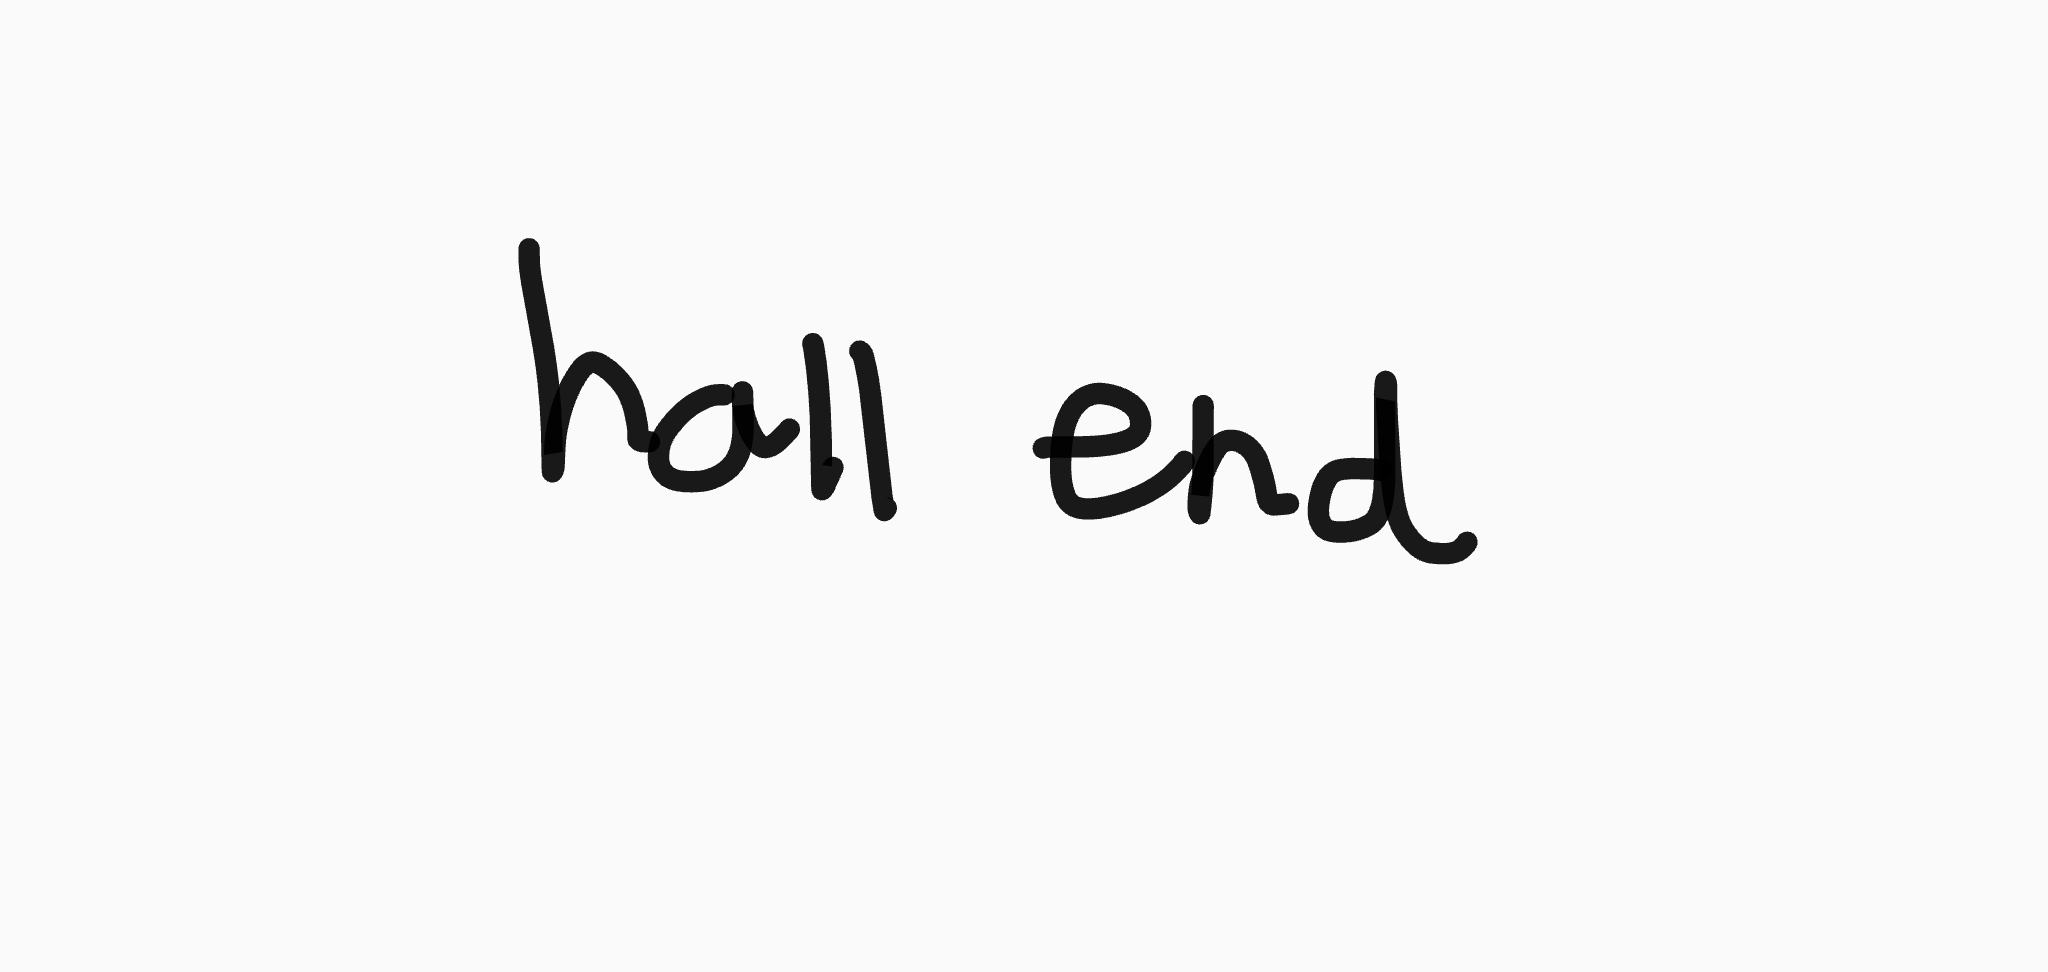 hall end